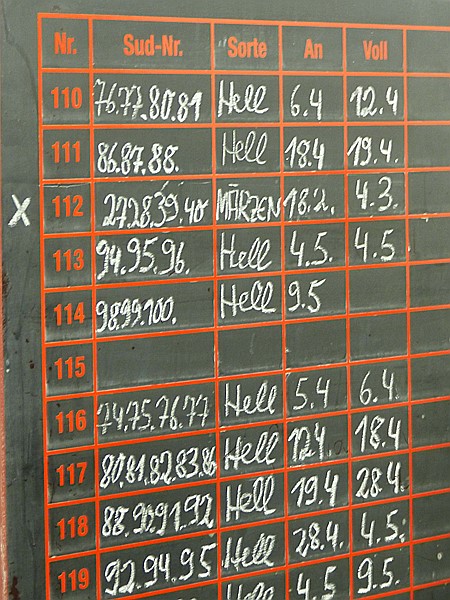 Nr. Sud-Nr. Sorte An Voll
110 76.77.80.81 Hell 6.4 12.4
111 86.87.88. Hell 18.4 19.4.
X 112 27.28.39.40 MÄRZEN 18.2. 4.3.
113 94.95.96. Hell 4.5. 4.5
114 98.99.100. Hell 9.5
115
116 74.75.76.77 Hell 5.4 6.4
117 80.81.82.83.86 Hell 12.4. 18.4
118 88.90.91.92 Hell 19.4 28.4.
119 92.94.95 Hell 28.4. 4.5.
4.5 9.5.